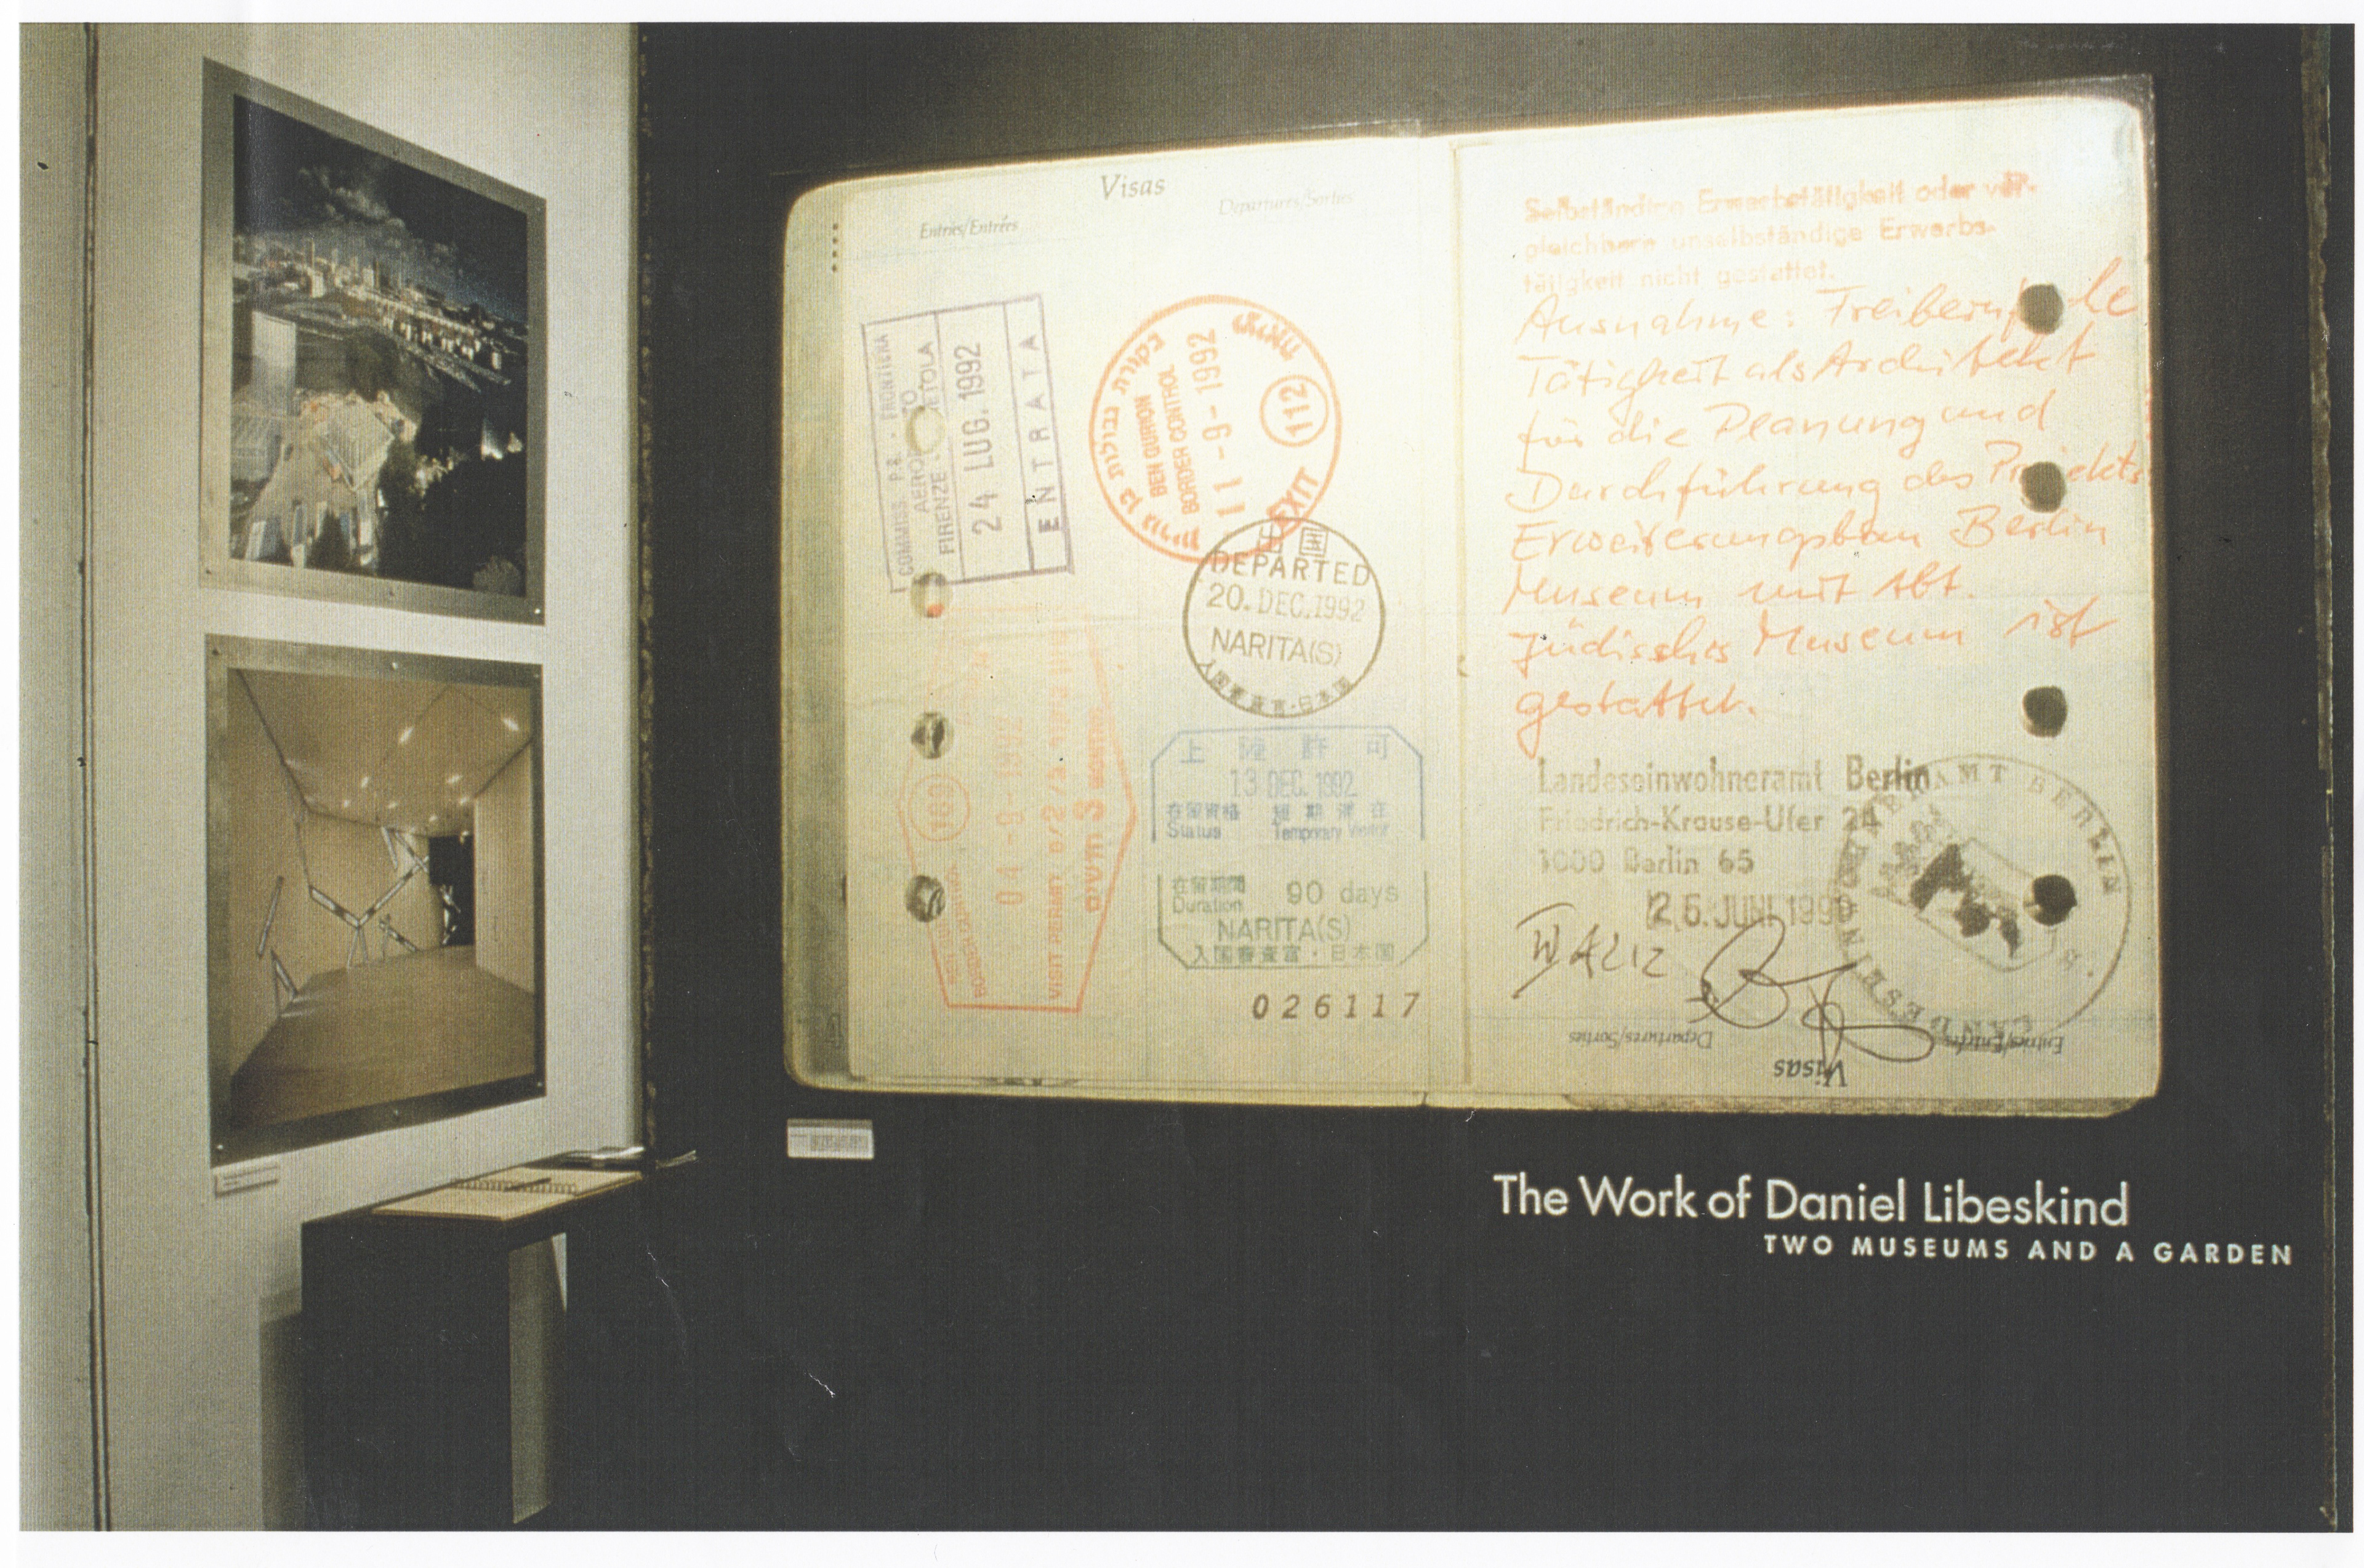 Visas
Entries/Entrées
Departures/Sorties
COMMISS. P.S. - FRONTIERA
FIRENZE
24 LUG. 1992
ENTRATA
ביקורת גבולות
BEN GURION
BORDER CONTROL
11-9-1992
יציאה
112
EXIT
出国
DEPARTED
20. DEC. 1992
NARITA(S)
入国審査官・日本国
169
04-9-1992
BORDER CONTROL
VISIT PERMIT
3 MONTHS
上陸許可
13 DEC. 1992
在留資格 短期滞在
Status Temporary Visitor
在留期間
Duration 90 days
NARITA(S)
入国審査官・日本国
026117
Selbständige Erwerbstätigkeit oder ver-
gleichbare unselbständige Erwerbs-
tätigkeit nicht gestattet.
Ausnahme: Freiberufliche
Tätigkeit als Architekt
für die Planung und
Durchführung des Projekts
Erweiterungsbau Berlin
Museum mit Abt.
Jüdisches Museum ist
gestattet.
Landeseinwohneramt Berlin
Friedrich-Krause-Ufer 24
1000 Berlin 65
26. JUNI 1990
LANDESEINWOHNERAMT BERLIN
Departures/Sorties
Entries/Entrées
Visas
The Work of Daniel Libeskind
TWO MUSEUMS AND A GARDEN